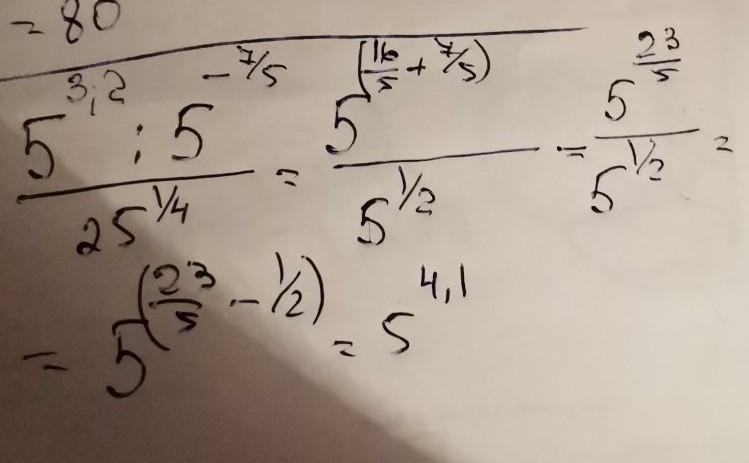 = 80
5^3,2 : 5^-7/5 / 25^1/4 = 5^(16/5 + 7/5) / 5^1/2 = 5^23/5 / 5^1/2 =
= 5^(23/5 - 1/2) = 5^4,1